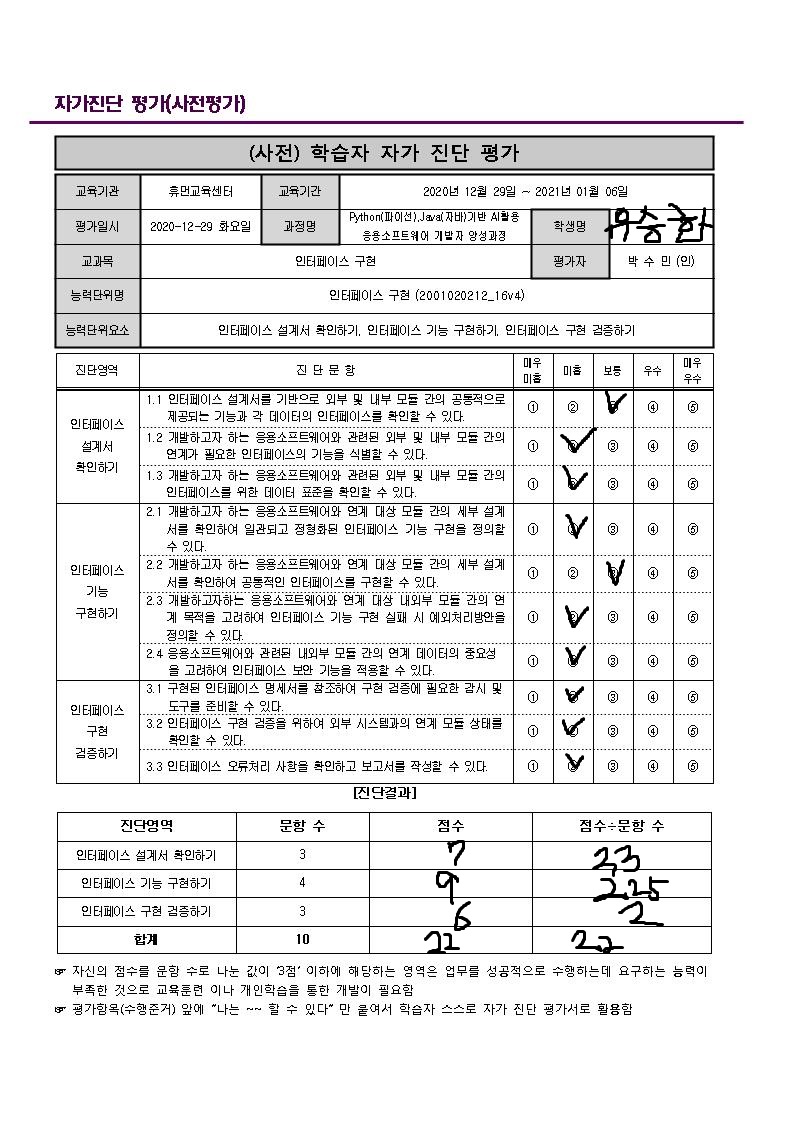 자가진단 평가(사전평가)
(사전) 학습자 자가 진단 평가
교육기관 휴먼교육센터 교육기간 2020년 12월 29일 ~ 2021년 01월 06일
평가일시 2020-12-29 화요일 과정명 Python(파이선),Java(자바)기반 AI활용 응용소프트웨어 개발자 양성과정 학생명 우승환
교과목 인터페이스 구현 평가자 박 수 민 (인)
능력단위명 인터페이스 구현 (2001020212_16v4)
능력단위요소 인터페이스 설계서 확인하기, 인터페이스 기능 구현하기, 인터페이스 구현 검증하기
진단영역 진 단 문 항 매우 미흡 미흡 보통 우수 매우 우수
인터페이스 설계서 확인하기
1.1 인터페이스 설계서를 기반으로 외부 및 내부 모듈 간의 공통적으로
제공되는 기능과 각 데이터의 인터페이스를 확인할 수 있다. ① ② ✓ ④ ⑤
1.2 개발하고자 하는 응용소프트웨어와 관련된 외부 및 내부 모듈 간의
연계가 필요한 인터페이스의 기능을 식별할 수 있다. ① ✓ ③ ④ ⑤
1.3 개발하고자 하는 응용소프트웨어와 관련된 외부 및 내부 모듈 간의
인터페이스를 위한 데이터 표준을 확인할 수 있다. ① ✓ ③ ④ ⑤
인터페이스 기능 구현하기
2.1 개발하고자 하는 응용소프트웨어와 연계 대상 모듈 간의 세부 설계
서를 확인하여 일관되고 정형화된 인터페이스 기능 구현을 정의할
수 있다. ① ✓ ③ ④ ⑤
2.2 개발하고자 하는 응용소프트웨어와 연계 대상 모듈 간의 세부 설계
서를 확인하여 공통적인 인터페이스를 구현할 수 있다. ① ② ✓ ④ ⑤
2.3 개발하고자하는 응용소프트웨어와 연계 대상 내외부 모듈 간의 연
계 목적을 고려하여 인터페이스 기능 구현 실패 시 예외처리방안을
정의할 수 있다. ① ✓ ③ ④ ⑤
2.4 응용소프트웨어와 관련된 내외부 모듈 간의 연계 데이터의 중요성
을 고려하여 인터페이스 보안 기능을 적용할 수 있다. ① ✓ ③ ④ ⑤
인터페이스 구현 검증하기
3.1 구현된 인터페이스 명세서를 참조하여 구현 검증에 필요한 감시 및
도구를 준비할 수 있다. ① ✓ ③ ④ ⑤
3.2 인터페이스 구현 검증을 위하여 외부 시스템과의 연계 모듈 상태를
확인할 수 있다. ① ✓ ③ ④ ⑤
3.3 인터페이스 오류처리 사항을 확인하고 보고서를 작성할 수 있다. ① ✓ ③ ④ ⑤
[진단결과]
진단영역 문항 수 점수 점수÷문항 수
인터페이스 설계서 확인하기 3 7 2.3
인터페이스 기능 구현하기 4 9 2.25
인터페이스 구현 검증하기 3 6 2
합계 10 22 2.2
☞ 자신의 점수를 문항 수로 나눈 값이 '3점' 이하에 해당하는 영역은 업무를 성공적으로 수행하는데 요구하는 능력이
부족한 것으로 교육훈련 이나 개인학습을 통한 개발이 필요함
☞ 평가항목(수행준거) 앞에 "나는 ~~ 할 수 있다" 만 붙여서 학습자 스스로 자가 진단 평가서로 활용함